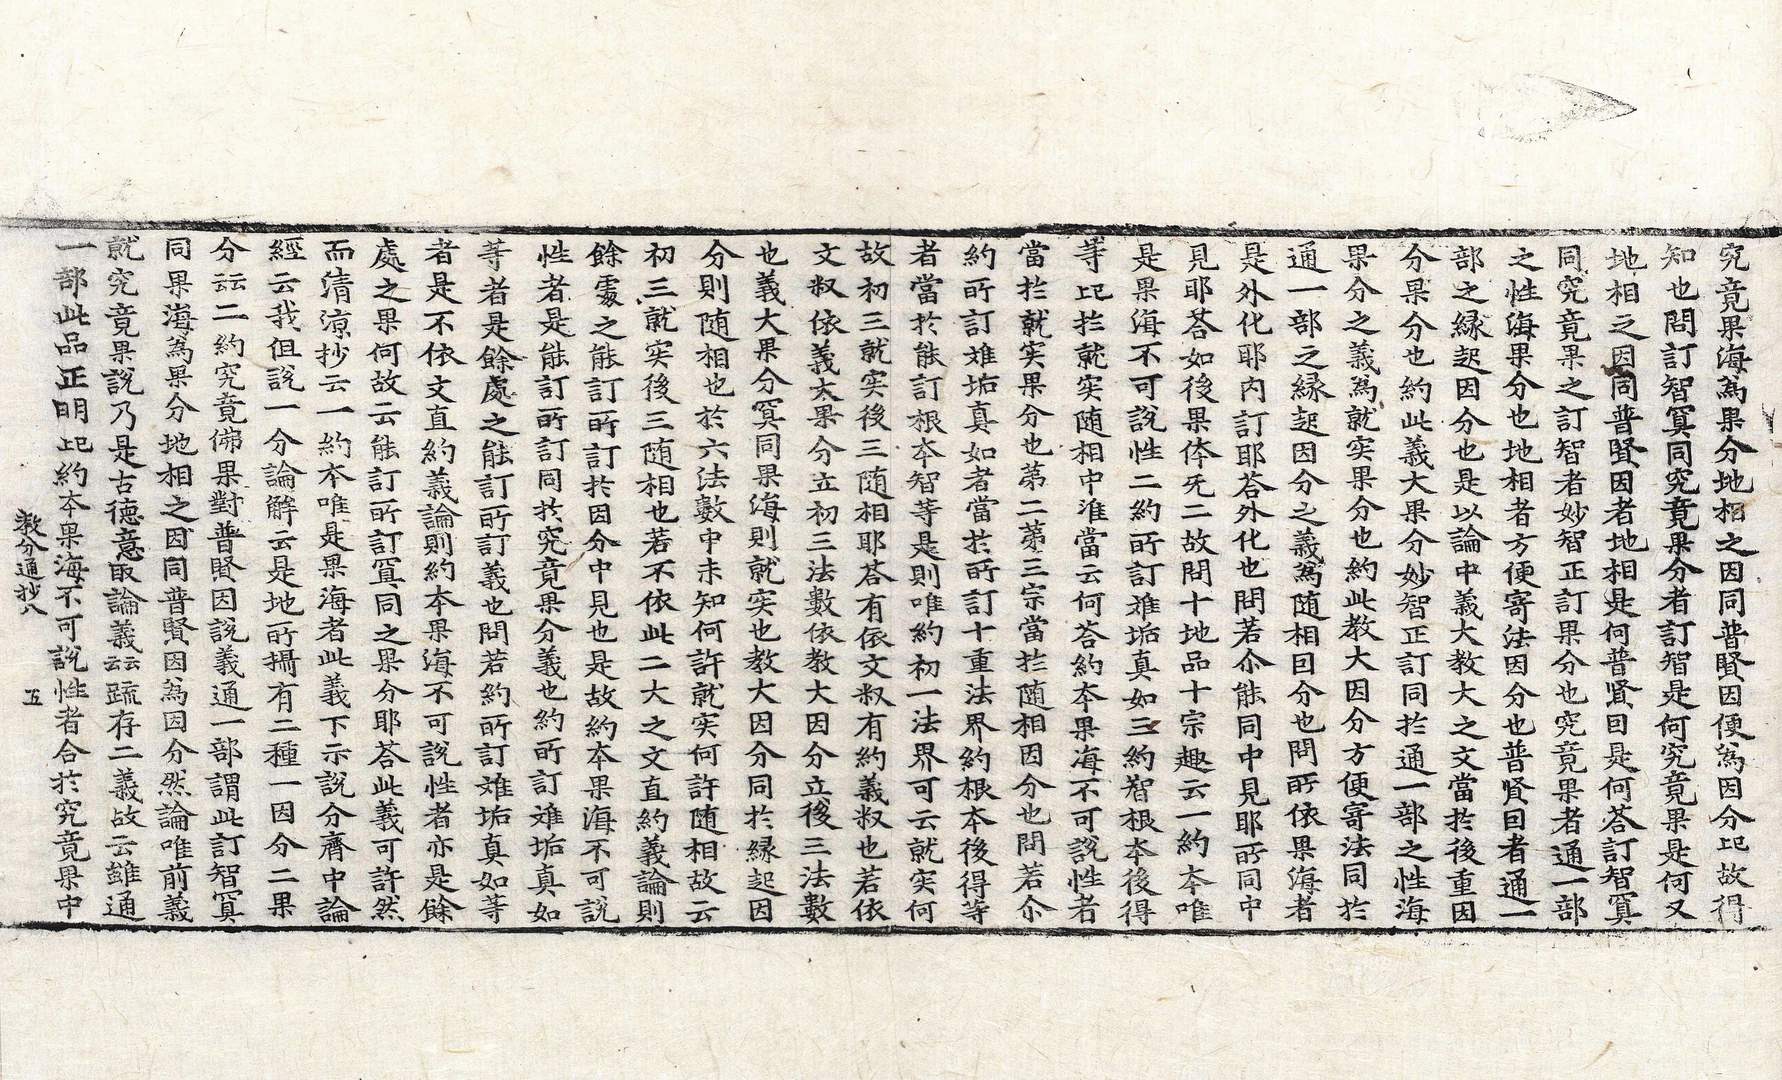 究竟果海為果分地相之因同普賢因便為因分㐲故得
知也問訂智冥同究竟果分者訂智是何究竟果是何又
地相之因同普賢因者地相是何普賢因是何荅訂智冥
同究竟果之訂智者妙智正訂果分也究竟果者通一部
之性海果分也地相者方便寄法因分也普賢因者通一
部之縁起因分也是以論中義大教大之文當於後重因
分果分也約此義大果分妙智正訂同於通一部之性海
果分之義為就实果分也約此教大因分方便寄法同於
通一部之縁起因分之義為随相因分也問所依果海者
是外化耶內訂耶荅外化也問若尒能同中見耶所同中
見耶荅如後果体旡二故問十地品十宗趣云一約本唯
是果海不可說性二約所訂離垢真如三約智根本後得
等㐲於就实随相中准當云何荅約本果海不可說性者
當於就实果分也第二第三宗當於随相因分也問若尒
約所訂離垢真如者當於所訂十重法界約根本後得等
者當於能訂根本智等是則唯約初一法界可云就实何
故初三就实後三随相耶荅有依文㕘有約義㕘也若依
文㕘依義大果分立初三法數依教大因分立後三法數
也義大果分冥同果海則就实也教大因分同於縁起因
分則随相也於六法數中未知何許就实何許随相故云
初三就实後三随相也若不依此二大之文直約義論則
餘䖏之能訂所訂於因分中見也是故約本果海不可說
性者是能訂所訂同於究竟果分義也約所訂離垢真如
等者是餘處之能訂所訂義也問若約所訂離垢真如等
者是不依文直約義論則約本果海不可說性者亦是餘
處之果何故云能訂所訂冥同之果分耶荅此義可許然
而清涼抄云一約本唯是果海者此義下示說分齊中論
經云我但說一分論解云是地所攝有二種一因分二果
分云云二約究竟佛果對普賢因說義通一部謂此訂智冥
同果海為果分地相之因同普賢因為因分然論唯前義
就究竟果說乃是古德意取論義云云䟽存二義故云雖通
一部此品正明㐲約本果海不可說性者合於究竟果中
教分通抄八　五